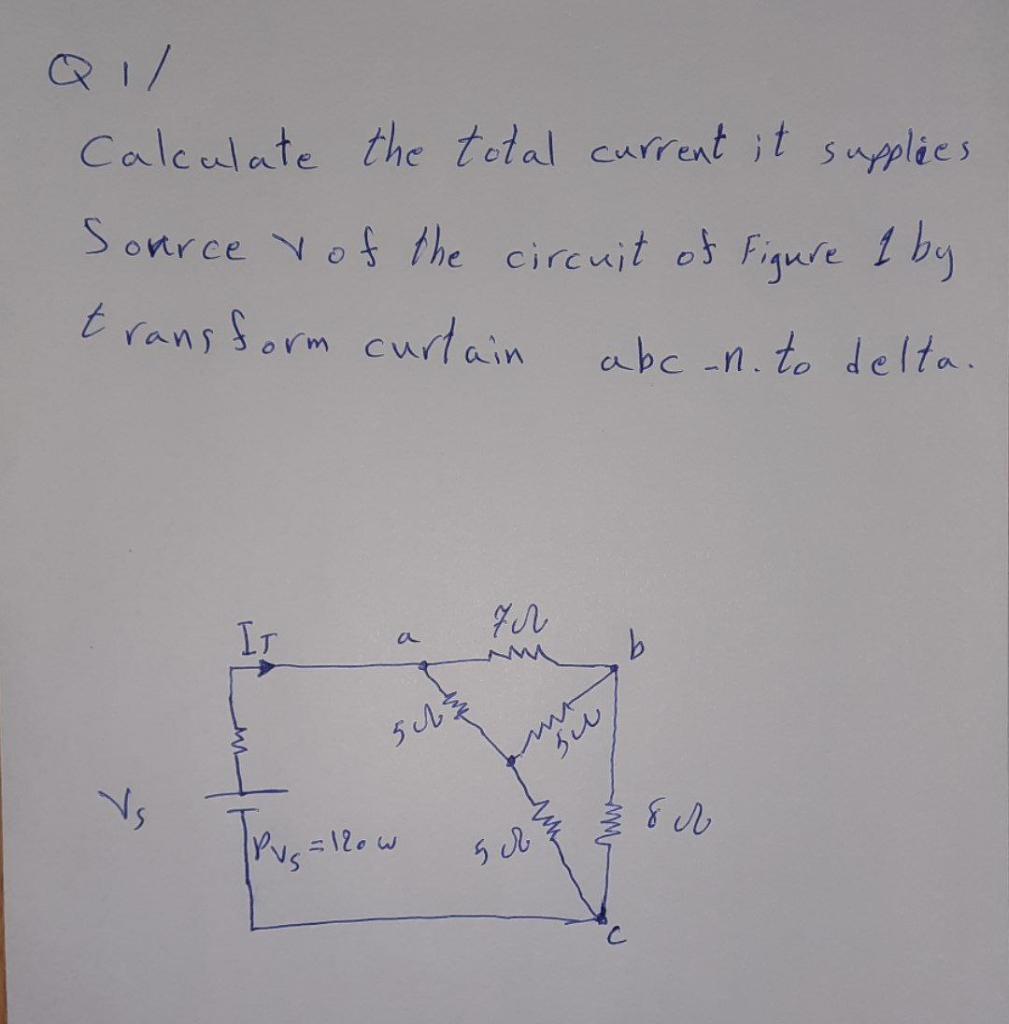 Q 1/
Calculate the total current it supplies
Source V of the circuit of Figure 1 by
transform curtain abc -n. to delta.
7Ω
IT a b
5Ω 5Ω
Vs 8Ω
PVs = 120 w 5Ω
c